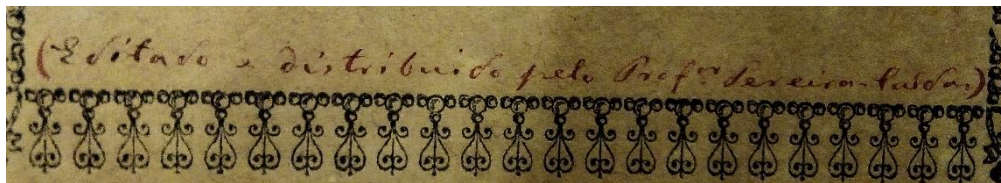 (Editado e distribuido pelo Profor Pereira Caldas)